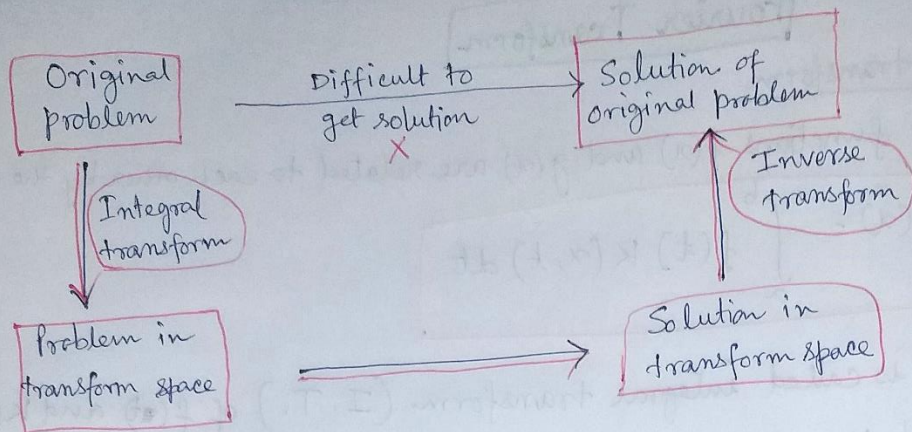 Original
problem
Difficult to
get solution
X
Solution of
original problem
Integral
transform
Inverse
transform
Problem in
transform space
Solution in
transform space